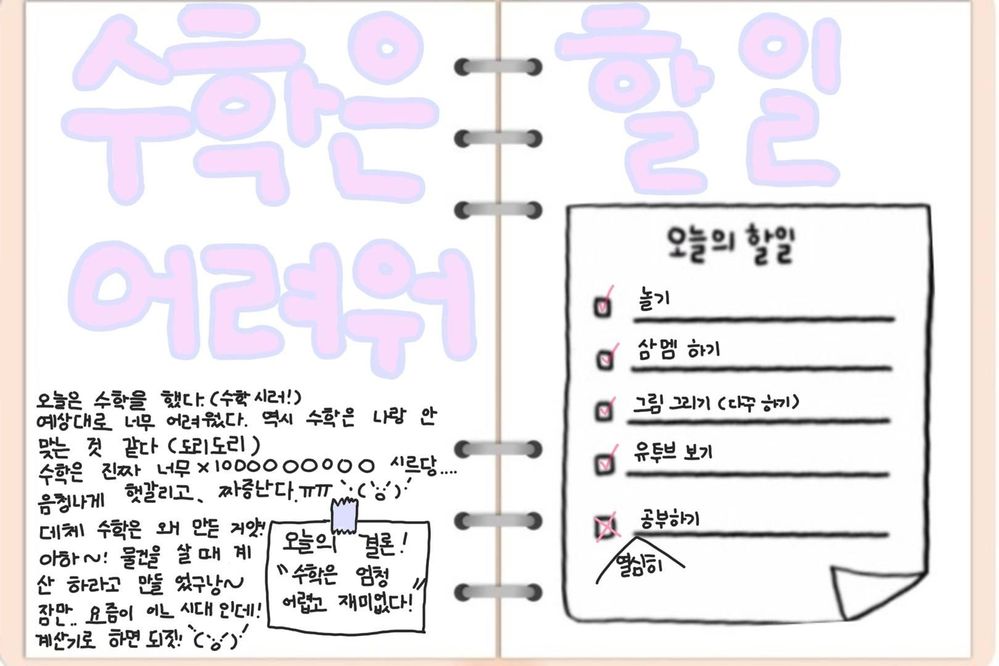 수학은
어려워
오늘은 수학을 했다.(수학 시러!)
예상대로 너무 어려웠다. 역시 수학은 나랑 안
맞는 것 같다 (도리도리)
수학은 진짜 너무 ×10000000000 시르당....
음청나게 햇갈리고、짜증난다.ㅠㅠ
데체 수학은 왜 만든 거얏!
아하~! 물건을 살 때 계
산 하라고 만들 었구낭~
잠만.. 요즘이 어느 시대 인데!
계산기로 하면 되짓!
오늘의 결론!
"수학은 엄청
어렵고 재미없다!"
할일
오늘의 할일
놀기
삼멤 하기
그림 그리기 (다꾸 하기)
유투브 보기
공부하기
열심히